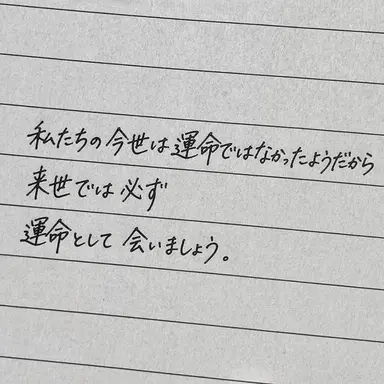 私たちの今世は運命ではなかったようだから
来世では必ず
運命として会いましょう。